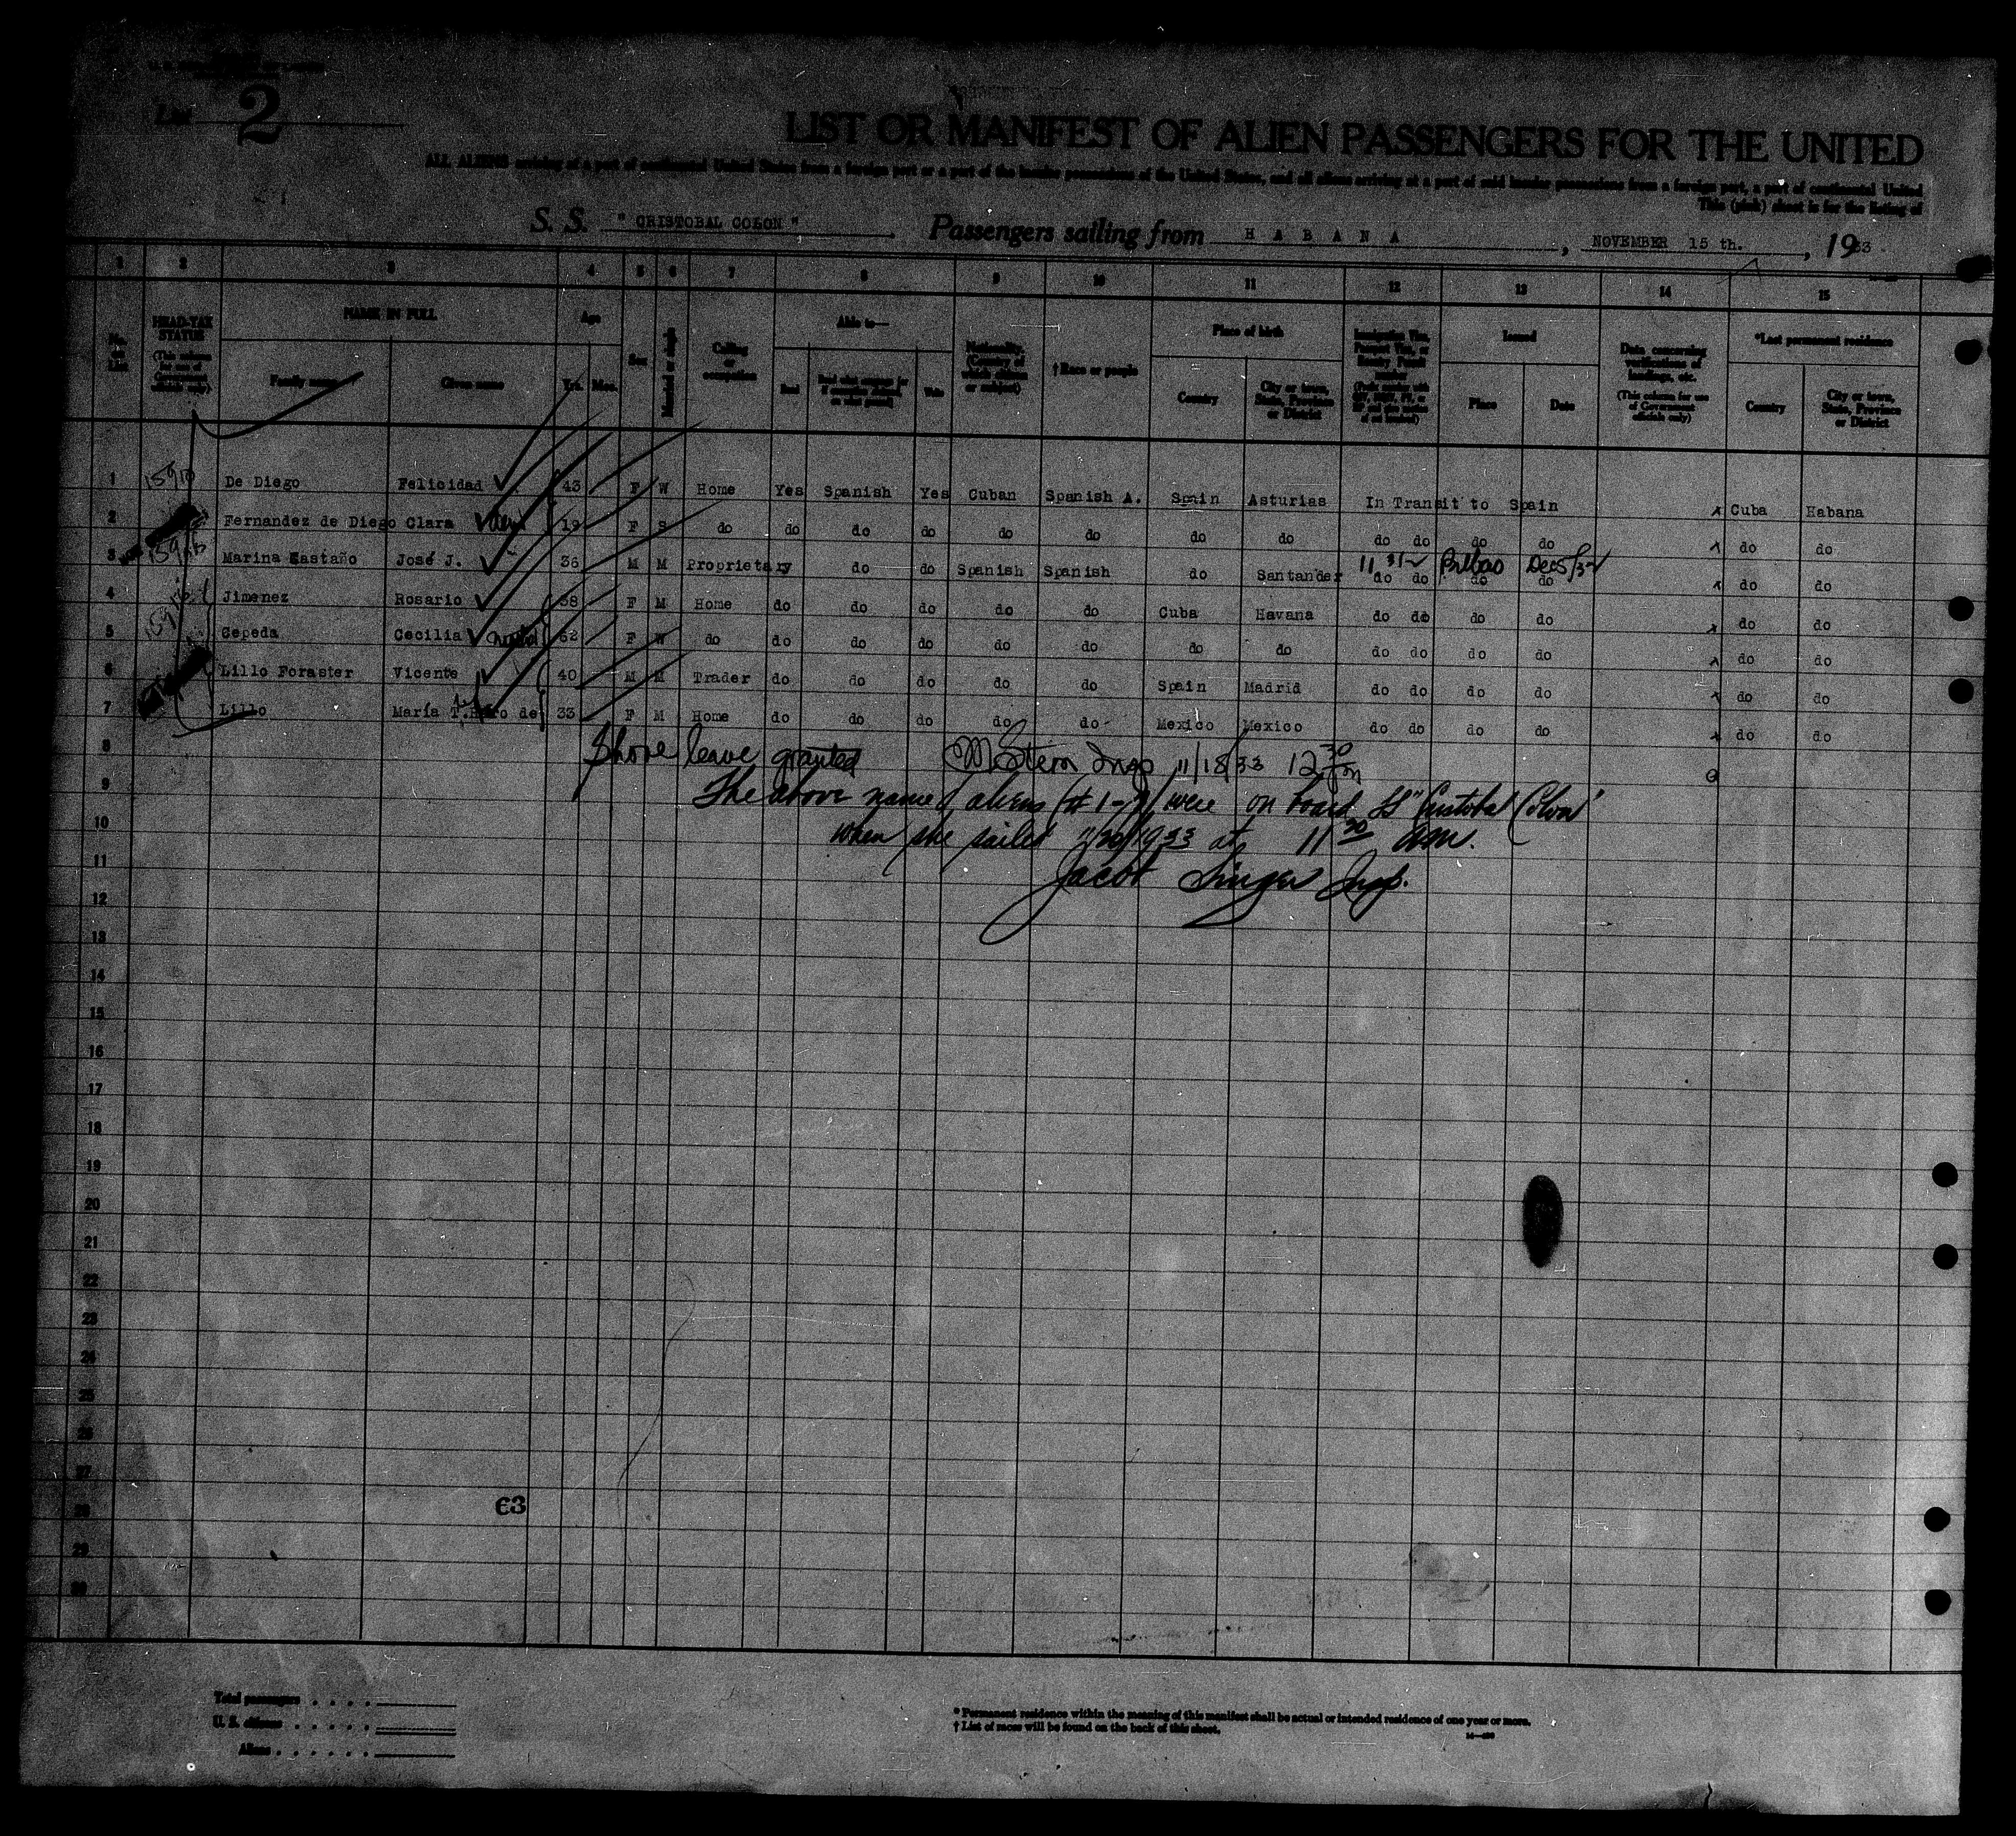 List 2
LIST OR MANIFEST OF ALIEN PASSENGERS FOR THE UNITED
ALL ALIENS arriving at a port of continental United States from a foreign port or a port of the insular possessions of the United States, and all aliens arriving at a port of said insular possessions from a foreign port, a port of continental United
This (pink) sheet is for the listing of
S. S. " CRISTOBAL COLON " , Passengers sailing from H A B A N A , NOVEMBER 15 th. , 1933
1 2 3 4 5 6 7 8 9 10 11 12 13 14 15
No. on List
HEAD-TAX STATUS (This column for use of Government officials only)
NAME IN FULL
Family name Given name
Age
Yrs. Mos.
Sex
Married or single
Calling or occupation
Able to—
Read Write
Nationality. (Country of which citizen or subject)
† Race or people
Place of birth
Country City or town, State, Province or District
Issued
Place Date
Data concerning verifications of landings, etc. (This column for use of Government officials only)
*Last permanent residence
Country City or town, State, Province or District
1 De Diego Felicidad 43 F W Home Yes Spanish Yes Cuban Spanish A. Spain Asturias In Transit to Spain x Cuba Habana
2 Fernandez de Diego Clara 19 F S do do do do do do do do do do do do x do do
3 Marina Castaño José J. 36 M M Proprietary do do Spanish Spanish do Santander do do do do Bilbao x do do
4 Jimenez Rosario 38 F M Home do do do do do Cuba Havana do do do do x do do
5 Cepeda Cecilia 62 F W do do do do do do do do do do do do x do do
6 Lillo Foraster Vicente 40 M M Trader do do do do do Spain Madrid do do do do x do do
7 Lillo María T. de 33 F M Home do do do do do Mexico Mexico do do do do x do do
8 Shore leave granted M Stern Insp 11/18/33 12 30 pm
9 The above named aliens (# 1-7) were on board SS "Cristobal Colon"
10 when she sailed 11/20/1933 at 11 30 AM.
11 Jacob Singer Insp.
12
13
14
15
16
17
18
19
20
21
22
23
24
25
26
27
28
29
30
63
Total passengers
U. S. citizens
Aliens
* Permanent residence within the meaning of this manifest shall be actual or intended residence of one year or more.
† List of races will be found on the back of this sheet.